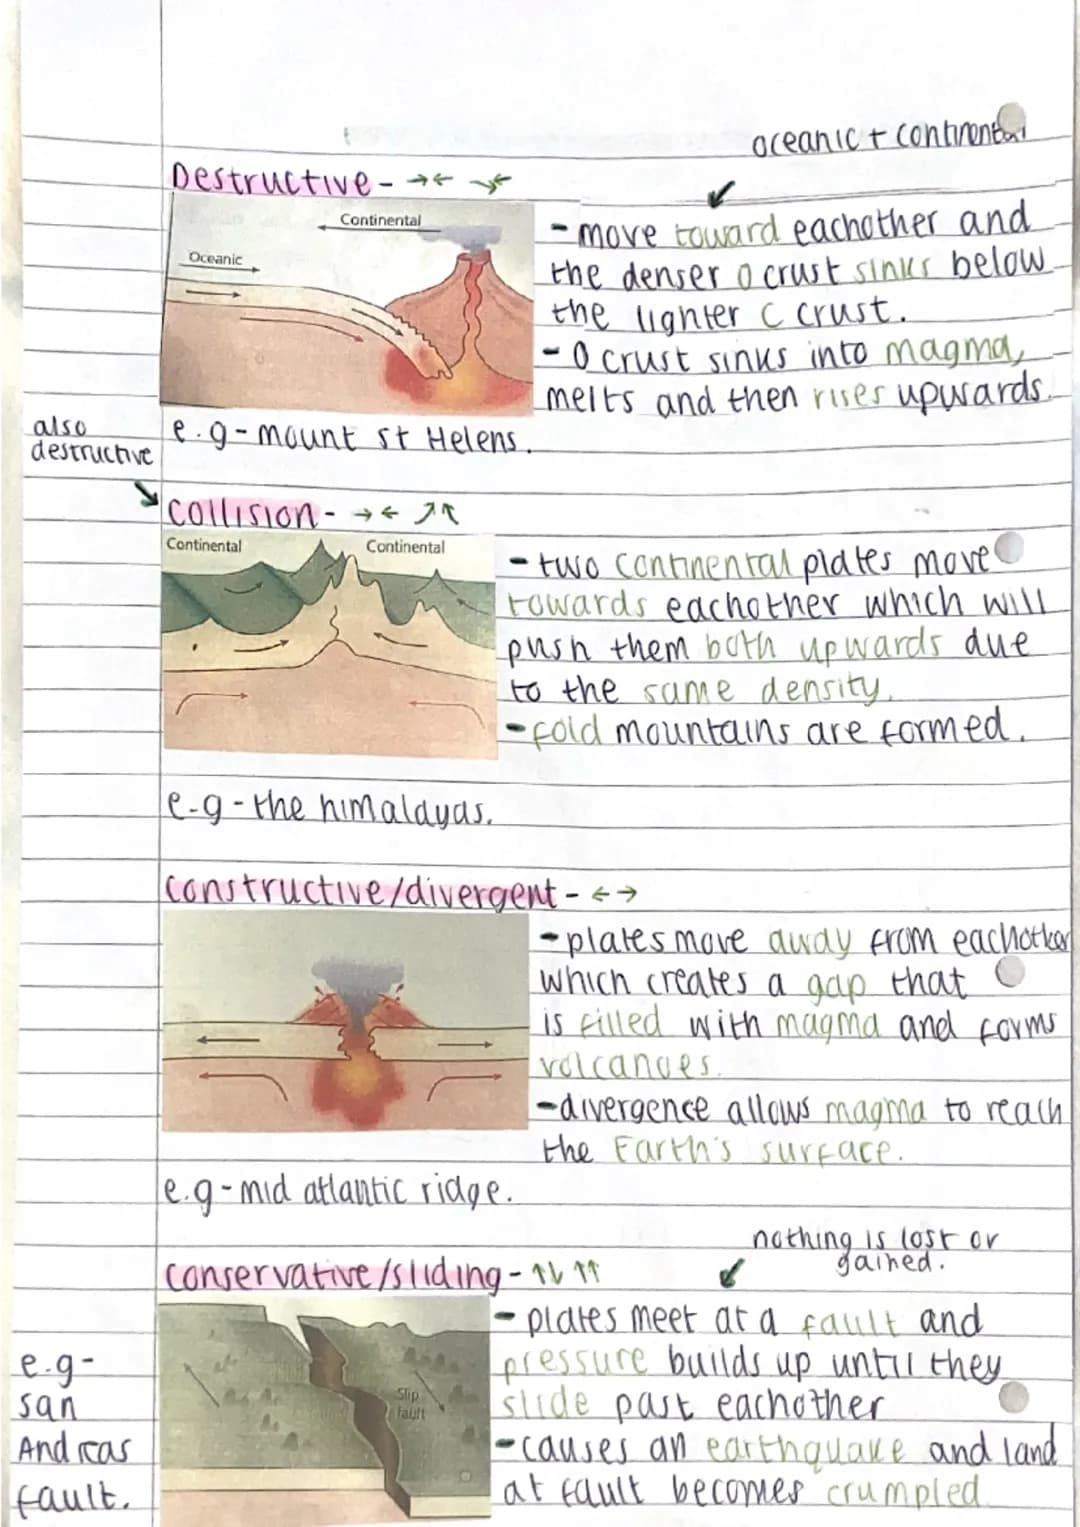 oceanic + continental
Destructive - →← ↘↙
Continental
Oceanic
- move toward eachother and
the denser O crust sinks below
the lighter C crust.
- O crust sinks into magma,
melts and then rises upwards.
e.g - mount st Helens.
also
destructive
collision - →← ↗↖
Continental
Continental
- two continental plates move
towards eachother which will
push them both upwards due
to the same density.
- fold mountains are formed.
e-g - the himalayas.
constructive/divergent - ←→
- plates move away from eachother
which creates a gap that
is filled with magma and forms
volcanoes.
- divergence allows magma to reach
the Earth's surface.
e.g - mid atlantic ridge.
nothing is lost or
gained.
conservative/sliding - ↑↓ ↑↑
- plates meet at a fault and
pressure builds up until they
slide past eachother
- causes an earthquake and land
at fault becomes crumpled
Slip
fault
e.g -
san
Andreas
fault.